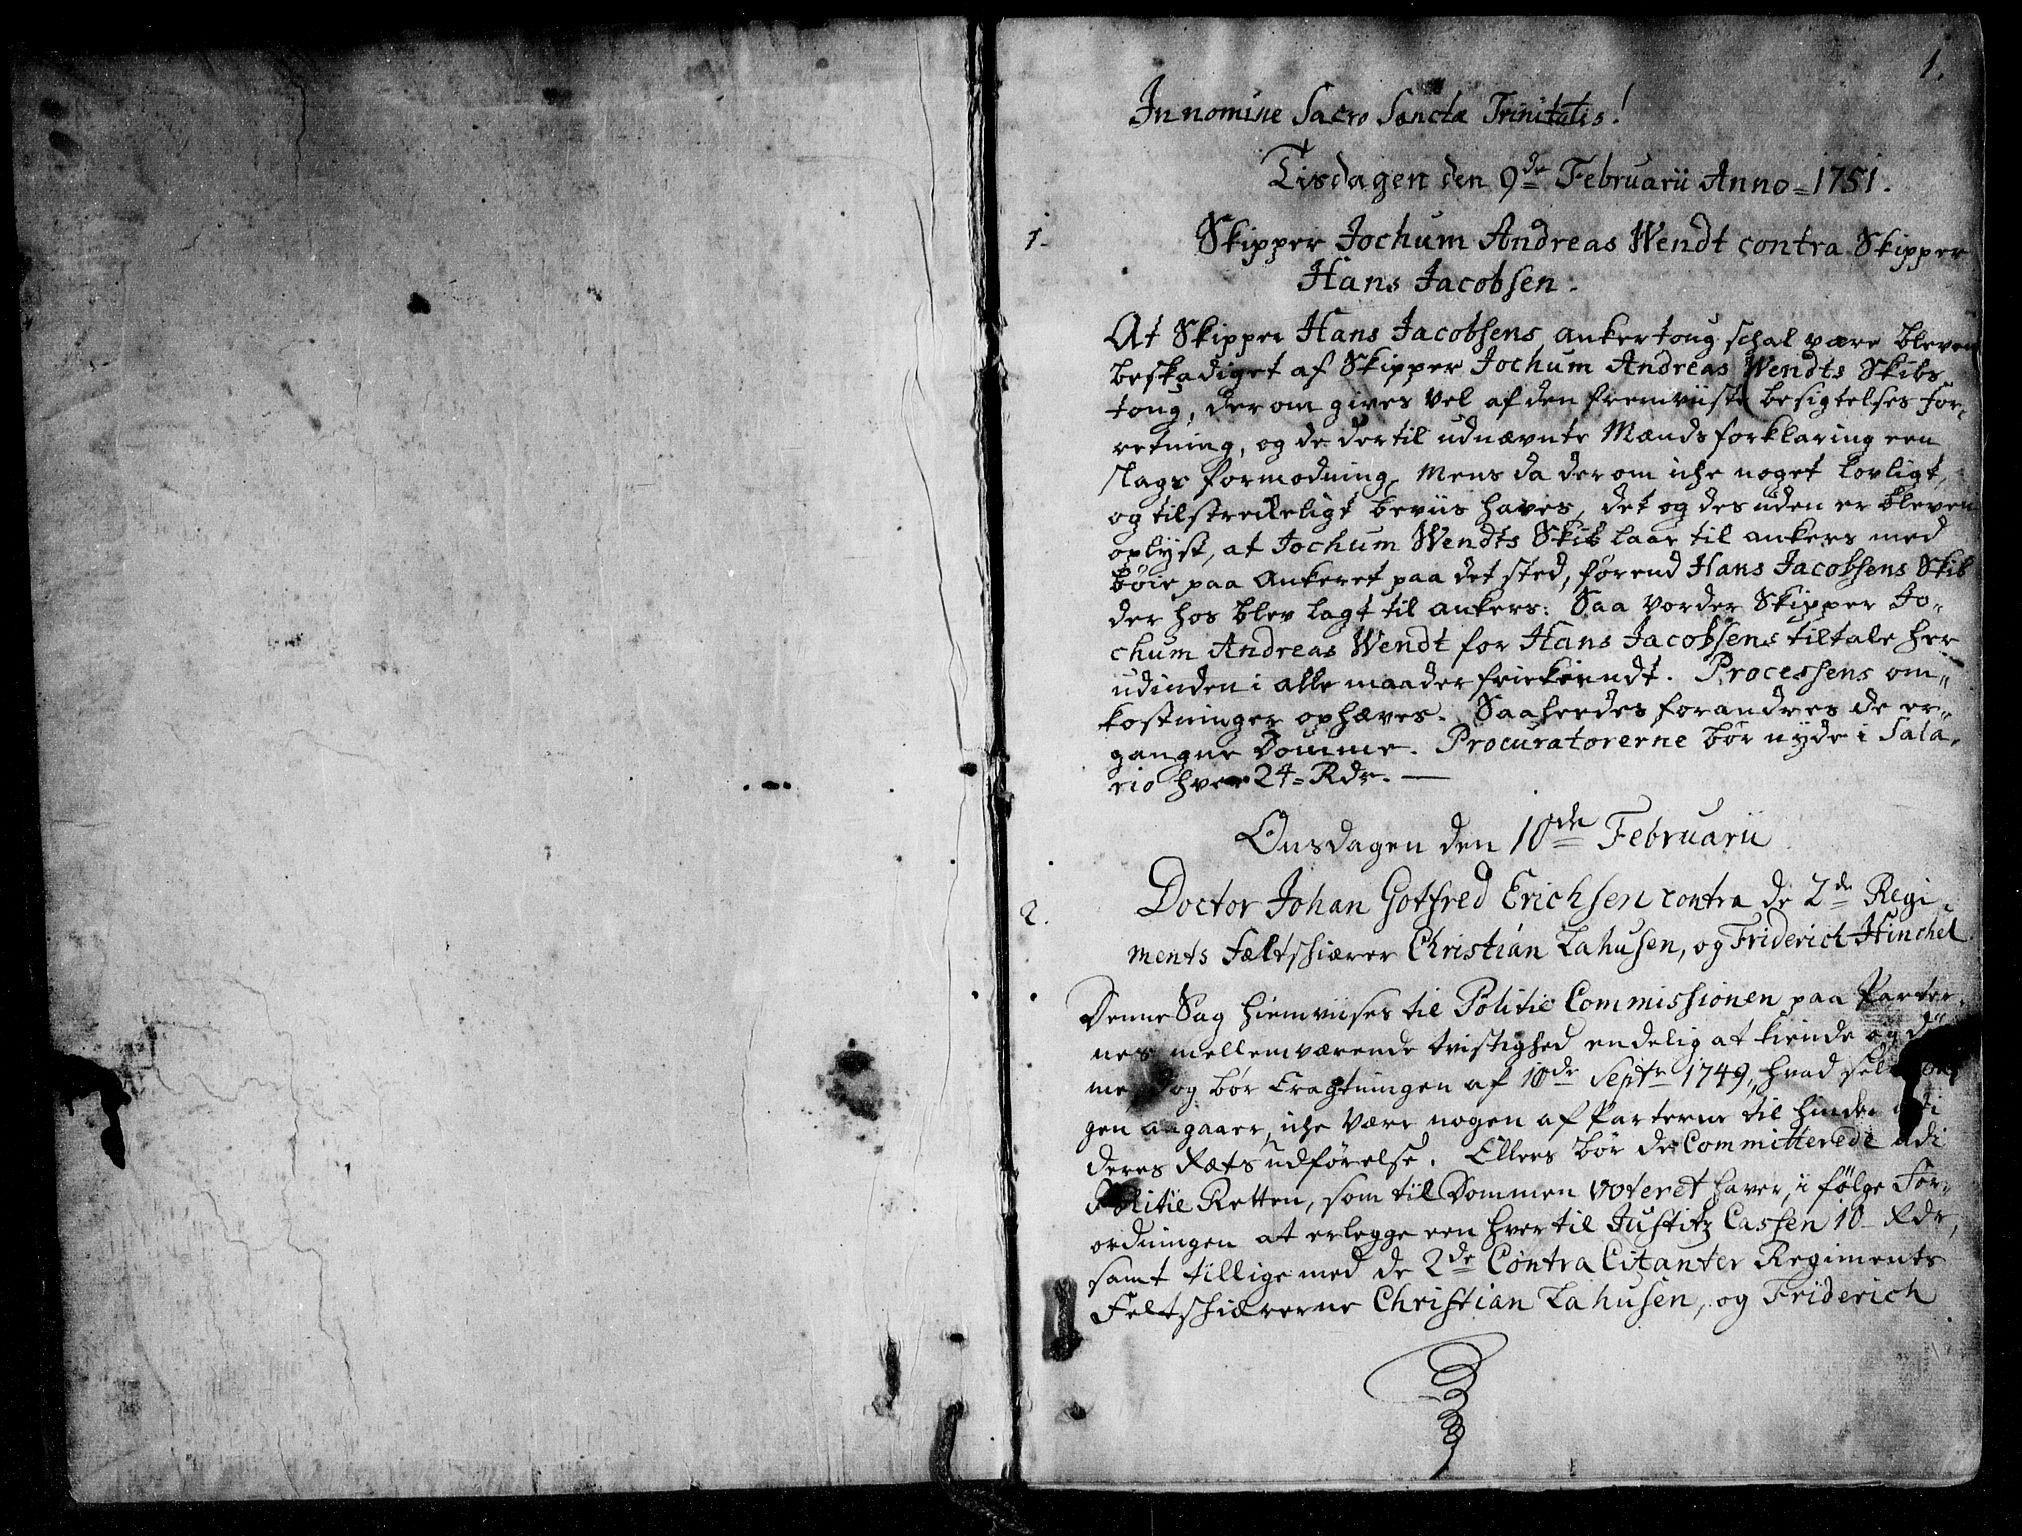 1.
In nomine Sacro Sanctæ Trinitatis!
Tisdagen den 9de Februarii Anno = 1751.
1. Skipper Jochum Andreas Wendt contra Skipper
Hans Jacobsen.
At Skipper Hans Jacobsens ankertoug schal være bleven
beskadiget af Skipper Jochum Andreas Wendts Skibs
toug, derom gives vel af den fremviiste besigtelses For-
retning, og de dertil udnævnte Mænds forklaring een
slags formodning, Mens da derom iche noget lovligt,
og tilstreckeligt beviis haves, det og desuden er bleven
oplyst, at Jochum Wendts Skib laae til ankers med
bøie paa Ankeret paa det sted, førend Hans Jacobsens Skib
der hos blev lagt til ankers: Saa vorder Skipper Jo-
chum Andreas Wendt for Hans Jacobsens tiltale her
udinden i alle maader friekiendt. Processens om-
kostninger ophæves. Saaledes forandres de er-
gangne Domme. Procuratorerne bør nyde i Sala-
rio hver 24 = Rdr. —
Onsdagen den 10de Februarii
2. Doctor Johan Gotfred Erichsen contra de 2de Regi-
ments Feltschiærer Christian Lahusen, og Friderich Hinchel
Denne Sag hiemviises til Politie Commissionen paa Parter-
nes mellemværende tvistighed endelig at kiende og døm-
me, og bør Eragtningen af 10de Septr 1749, hvad
gen angaaer, iche være nogen af Parterne til hinder udi
deres Rets udførelse. Ellers bør de Committerede udi
Politie Retten, som til Dommen voteret haver, i følge For-
ordningen at erlegge een hver til Justitz Cassen 10 Rdr,
samt tillige med de 2de Contra Citanter Regiments
Feltschiærerne Christian Lahusen, og Friderich